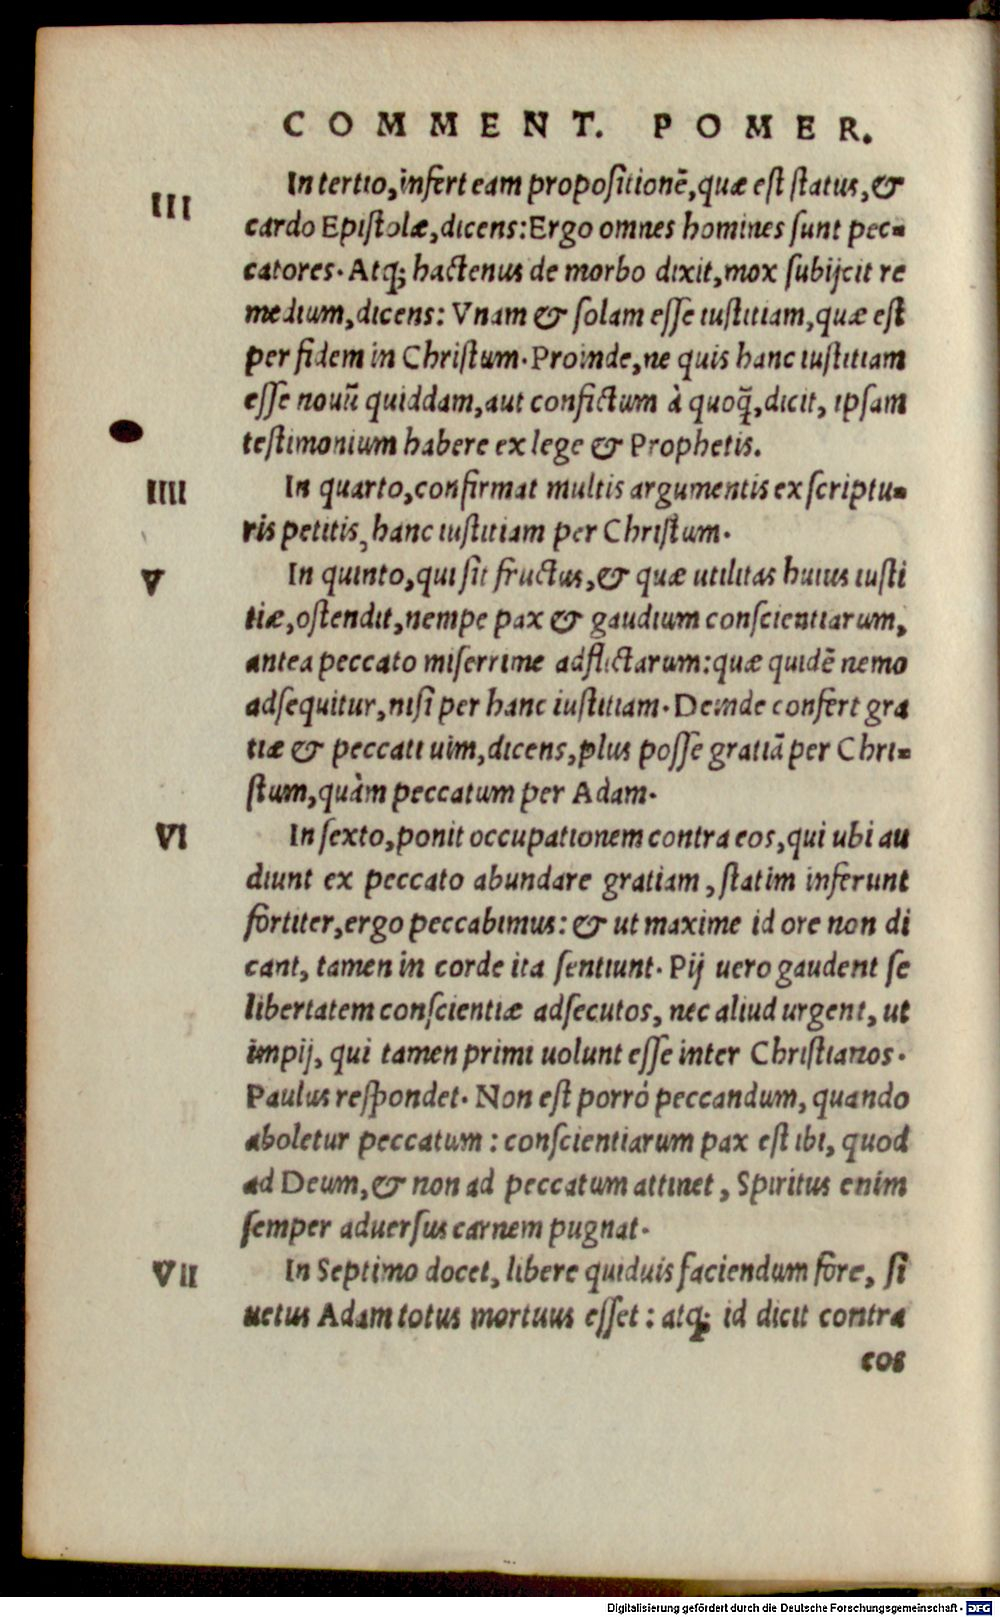 COMMENT. POMER.
III
In tertio, infert eam propositionē, quæ est status, &
cardo Epistolæ, dicens: Ergo omnes homines sunt pec-
catores. Atq; hactenus de morbo dixit, mox subijcit re
medium, dicens: Vnam & solam esse iustitiam, quæ est
per fidem in Christum. Proinde, ne quis hanc iustitiam
esse nouū quiddam, aut confictum à quoq̃, dicit, ipsam
testimonium habere ex lege & Prophetis.
IIII
In quarto, confirmat multis argumentis ex scriptu-
ris petitis, hanc iustitiam per Christum.
V
In quinto, qui sit fructus, & quæ utilitas huius iusti
tiæ, ostendit, nempe pax & gaudium conscientiarum,
antea peccato miserrime adflictarum: quæ quidē nemo
adsequitur, nisi per hanc iustitiam. Deinde confert gra
tiæ & peccati uim, dicens, plus posse gratiā per Chri-
stum, quàm peccatum per Adam.
VI
In sexto, ponit occupationem contra eos, qui ubi au
diunt ex peccato abundare gratiam, statim inferunt
fortiter, ergo peccabimus: & ut maxime id ore non di
cant, tamen in corde ita sentiunt. Pij uero gaudent se
libertatem conscientiæ adsecutos, nec aliud urgent, ut
impij, qui tamen primi uolunt esse inter Christianos.
Paulus respondet. Non est porrò peccandum, quando
aboletur peccatum: conscientiarum pax est ibi, quod
ad Deum, & non ad peccatum attinet, Spiritus enim
semper aduersus carnem pugnat.
VII
In Septimo docet, libere quiduis faciendum fore, si
uetus Adam totus mortuus esset: atq; id dicit contra
eos
Digitalisierung gefördert durch die Deutsche Forschungsgemeinschaft - DFG